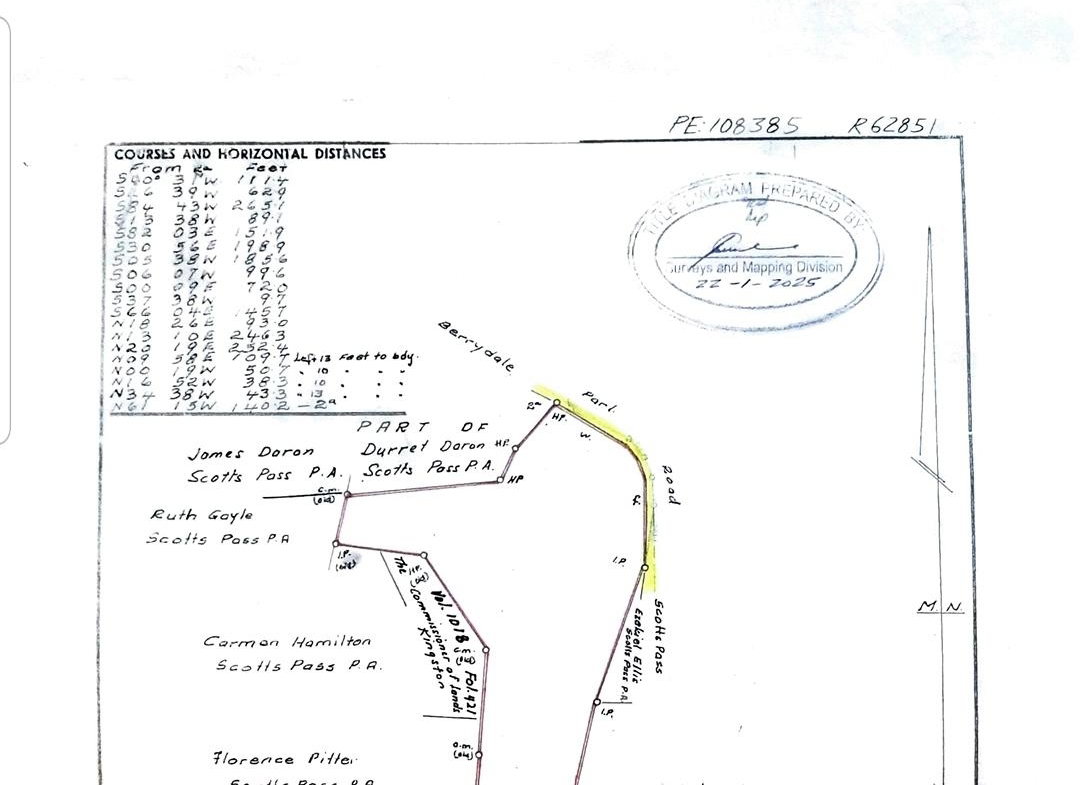 PE:108385 R62851
COURSES AND HORIZONTAL DISTANCES
From Feet
S40° 31W 111.4
39W 62.9
S84 43W 265.1
S15 38W 89.1
S82 03E 151.9
S30 56E 198.9
S05 38W 185.6
S06 07W 99.6
S00 09E 72.0
S37 38W 9.7
S66 04E 145.7
N18 26E 93.0
N13 10E 246.3
N20 19E 252.4
N09 58E 109.7 Left 13 Feet to bdy.
N00 19W 50.7 " 10 " " "
N16 52W 38.3 " 10 " " "
N34 38W 43.3 " 13 " " "
N61 15W 140.2 - 2ª
TITLE DIAGRAM PREPARED BY
Surveys and Mapping Division
22-1-2025
Berrydale
PART OF
2ª
H.P.
W.
Part.
James Doron
Durret Doron
H.P.
Scotts Pass P.A.
Scotts Pass P.A.
HP
Road
C.M.
(old)
Ruth Gayle
Scotts Pass P.A
I.P.
(old)
I.P.
The Commissioner of Lands
Kingston
Vol. 1018 Fol. 421
Scotts Pass
Ezekiel Ellis
Scotts Pass P.A.
M.N.
Carmen Hamilton
Scotts Pass P.A.
I.P.
C.M.
(old)
Florence Pitter
Scotts Pass P.A.